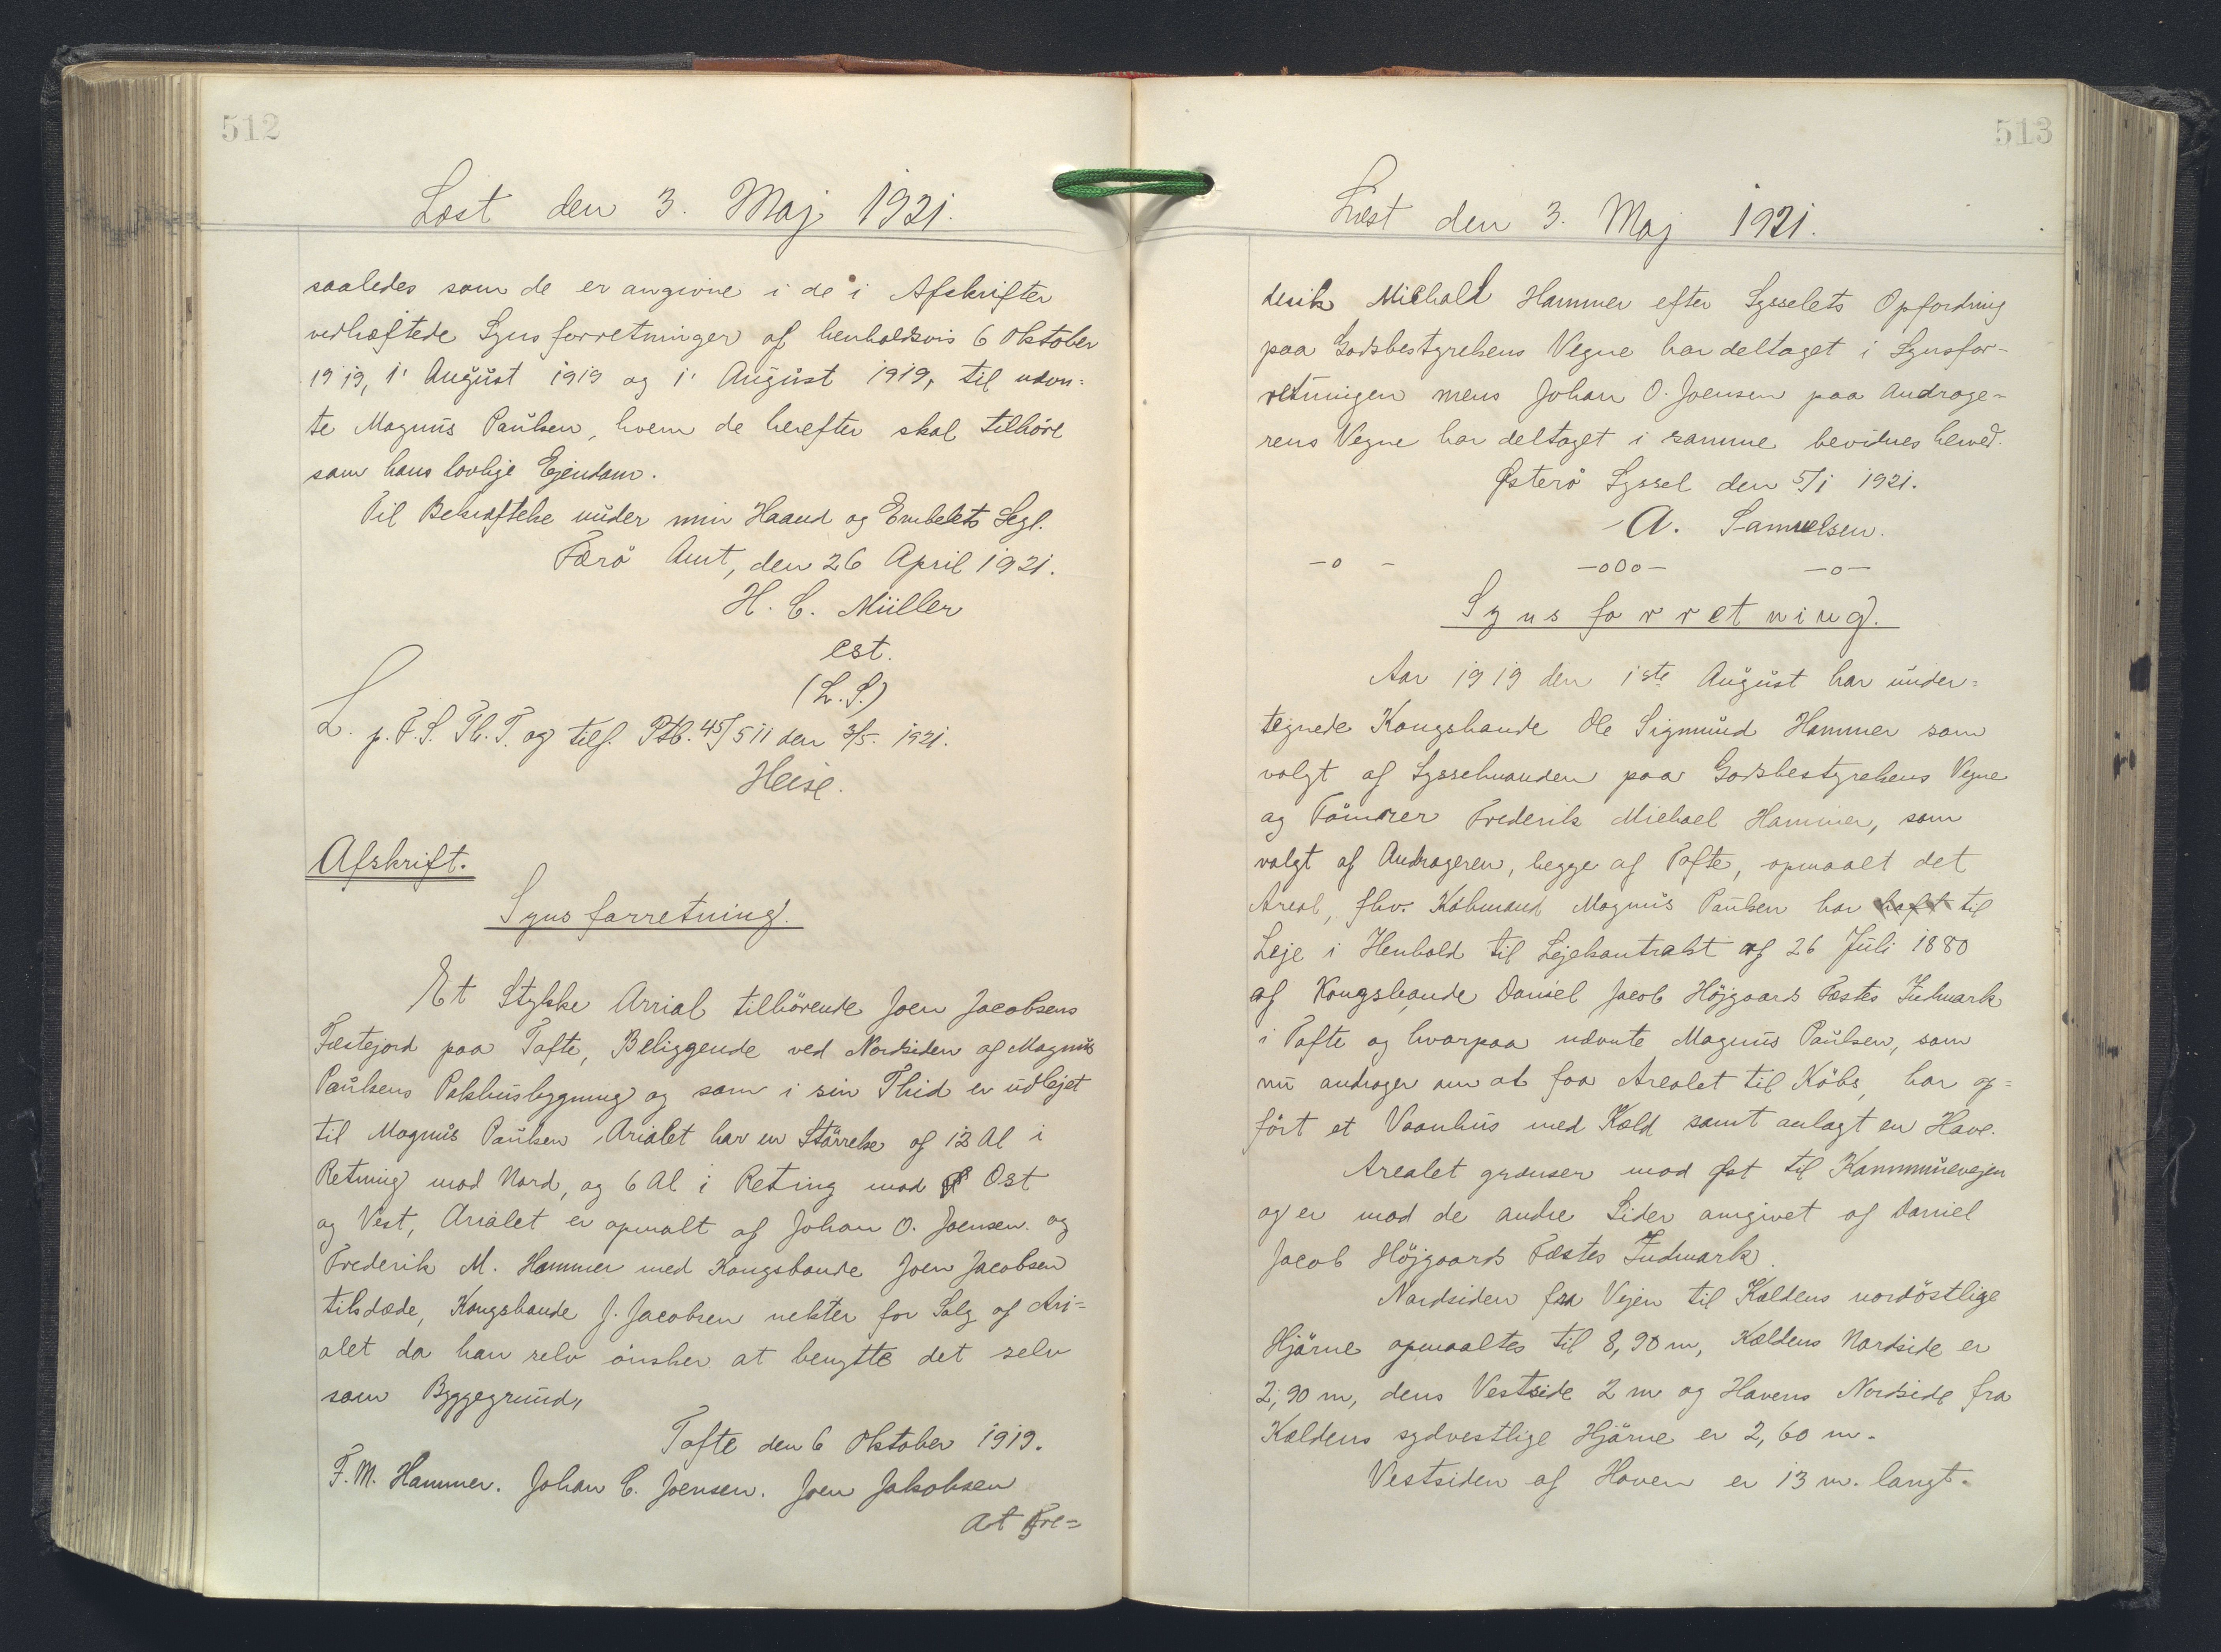 512
Læst den 3. Maj 1921.
saaledes som de er angivne i de i Afskrifter
vedhæftede Synsforretninger af henholdsvis 6 Oktober
1919, 1' August 1919 og 1' August 1919, til udvn=
te Magnus Paulsen, hvem de herefter skal tilhöre
som hans lovlige Ejendom.
Til Bekræftelse under min Haand og Embedets Segl.
Færö Amt, den 26 April 1921.
H. C. Müller
est.
(L. S.)
L. p. F. S. Th. T. og tilf. Ptb. 45/511 den 3/5. 1921.
Heise.
Afskrift.
Synsforretning.
Et Stykke Arrial tilhörende Joen Jacobsens
Fæstejord paa Tofte, Beliggende ved Nordsiden af Magnus
Paulsens Pakhusbygning og som i sin Thid er udlejet
til Magnus Paulsen Arialet har en Störrelse af 13 Al i
Retning mod Nord, og 6 Al i Retning mod Ost
og Vest, Arialet er opmalt af Johan O. Joensen og
Frederik M. Hammer med Kongsbonde Joen Jacobsen
tilstæde, Kongsbonde J. Jacobsen nekter for Salg af Ari=
alet da han selv önsker at benytte det selv
som Byggegrund,
Tofte den 6 Oktober 1919.
F. M. Hammer. Johan C. Joensen. Joen Jakobsen
At Fre=
513
Læst den 3. Maj 1921.
derik Michall Hammer efter Sysselets Opfordring
paa Godsbestyrelsens Vegne har deltaget i Synsfor-
retningen mens Johan O. Joensen paa Androge=
rens Vegne har deltaget i samme bevidnes herved.
Østerö Syssel den 5/1 1921.
A. Samuelsen.
-o - -o0o- -o-
Synsforretning.
Aar 1919 den 1ste August har under=
tegnede Kongsbonde Ole Sigmund Hammer som
valgt af Sysselmanden paa Godsbestyrelsens Vegne
og Tömrer Frederik Michael Hammer, som
valgt af Andrageren, begge af Tofte, opmaalt det
Areal, fhv. Köbmand Magnus Paulsen har haft til
Leje i Henhold til Lejekontrakt af 26 Juli 1880
af Kongsbonde Daniel Jacob Höjgaards Fæstes Indmark
i Tofte og hvorpaa udvnte Magnus Paulsen, som
nu androger om at faa Arealet til Köbs, har op=
fört et Vaanhus med Kæld samt anlagt en Have.
Arealet grænser mod Øst til Kommunevejen
og er mod de andre Sider omgivet af Daniel
Jacob Höjgaards Fæstes Indmark.
Nordsiden fra Vejen til Kældens nordöstlige
Hjörne opmaaltes til 8,90 m, Kældens Nordside er
2,90 m, dens Vestside 2 m og Havens Nordside fra
Kældens sydvestlige Hjörne er 2,60 m.
Vestsiden af Haven er 13 m. langt.